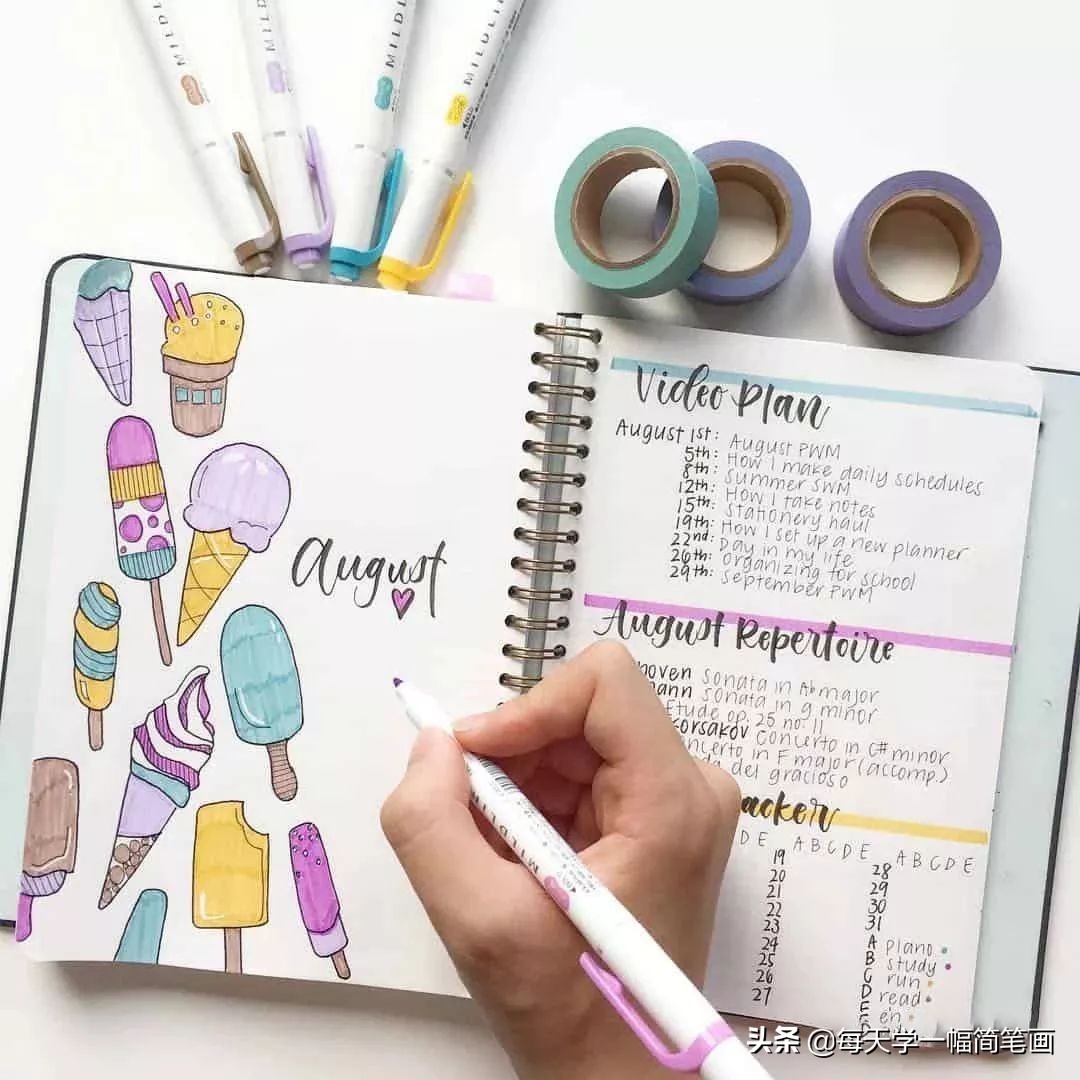 MILDL
MILDL
MILDLI
MILDLI
August
Video Plan
August 1st: August PWM
5th: How I make daily schedules
8th: Summer SWM
12th: How I take notes
15th: Stationery haul
19th: How I set up a new planner
22nd: Day in my life
26th: Organizing for school
29th: September PWM
August Repertoire
hoven Sonata in Ab major
mann Sonata in g minor
Etude op. 25 no. 11
Korsakov Concerto in C# minor
ncerto in F major (accomp.)
da del gracioso
acker
D E A B C D E A B C D E
19 28
20 29
21 30
22 31
23 A piano
24 B study
25 C run
26 D read
27 E
MILDL
头条 @每天学一幅简笔画